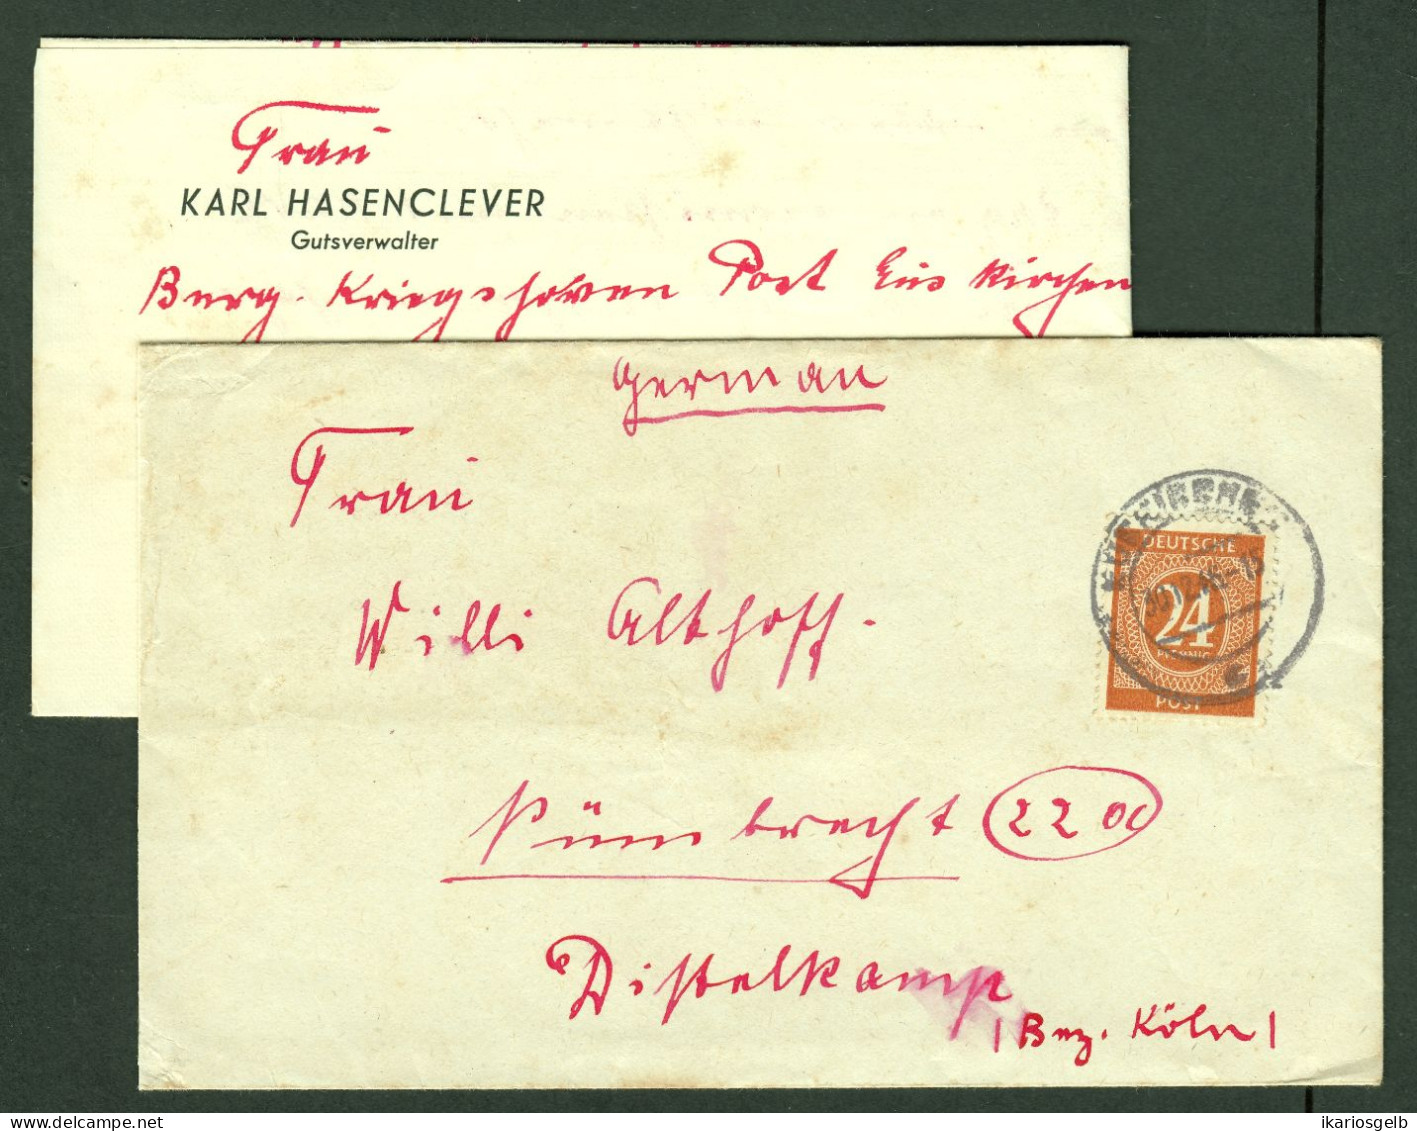 Frau
KARL HASENCLEVER
Gutsverwalter
Burg. Kriegshoven Post Euskirchen
german
Frau
Willi Althoff.
Nümbrecht 22
Distelkamp
(Bez. Köln)
DEUTSCHE
24
PFENNIG
POST
ikariosgelb